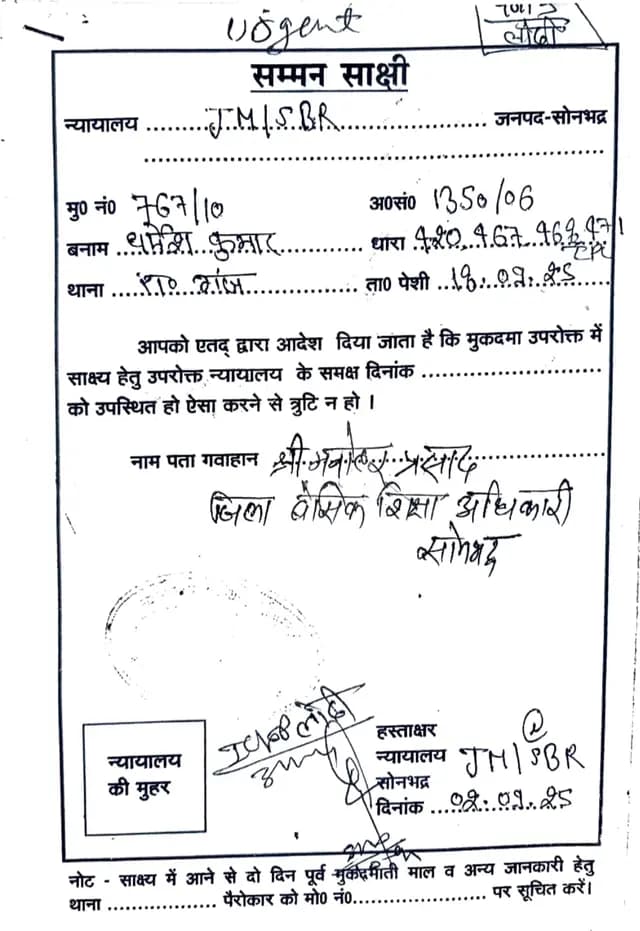 Urgent
लोढ़ी
सम्मन साक्षी
न्यायालय ....JM/SBR.... जनपद-सोनभद्र
मु0 नं0 767/10 अ0सं0 1350/06
बनाम ..धर्मेश कुमार.... धारा .420.467.468.471
थाना ....रा0 गंज.... ता0 पेशी ..18.09.25..
आपको एतद् द्वारा आदेश दिया जाता है कि मुकदमा उपरोक्त में
साक्ष्य हेतु उपरोक्त न्यायालय के समक्ष दिनांक ............................
को उपस्थित हो ऐसा करने से त्रुटि न हो ।
नाम पता गवाहान श्री प्रसाद
जिला बेसिक शिक्षा अधिकारी
सोनभद्र
लोढ़ी
हस्ताक्षर
न्यायालय JM/SBR
सोनभद्र
दिनांक ..02.09.25
न्यायालय
की मुहर
नोट - साक्ष्य में आने से दो दिन पूर्व मुकदमाती माल व अन्य जानकारी हेतु
थाना .................. पैरोकार को मो0 नं0..................... पर सूचित करें।